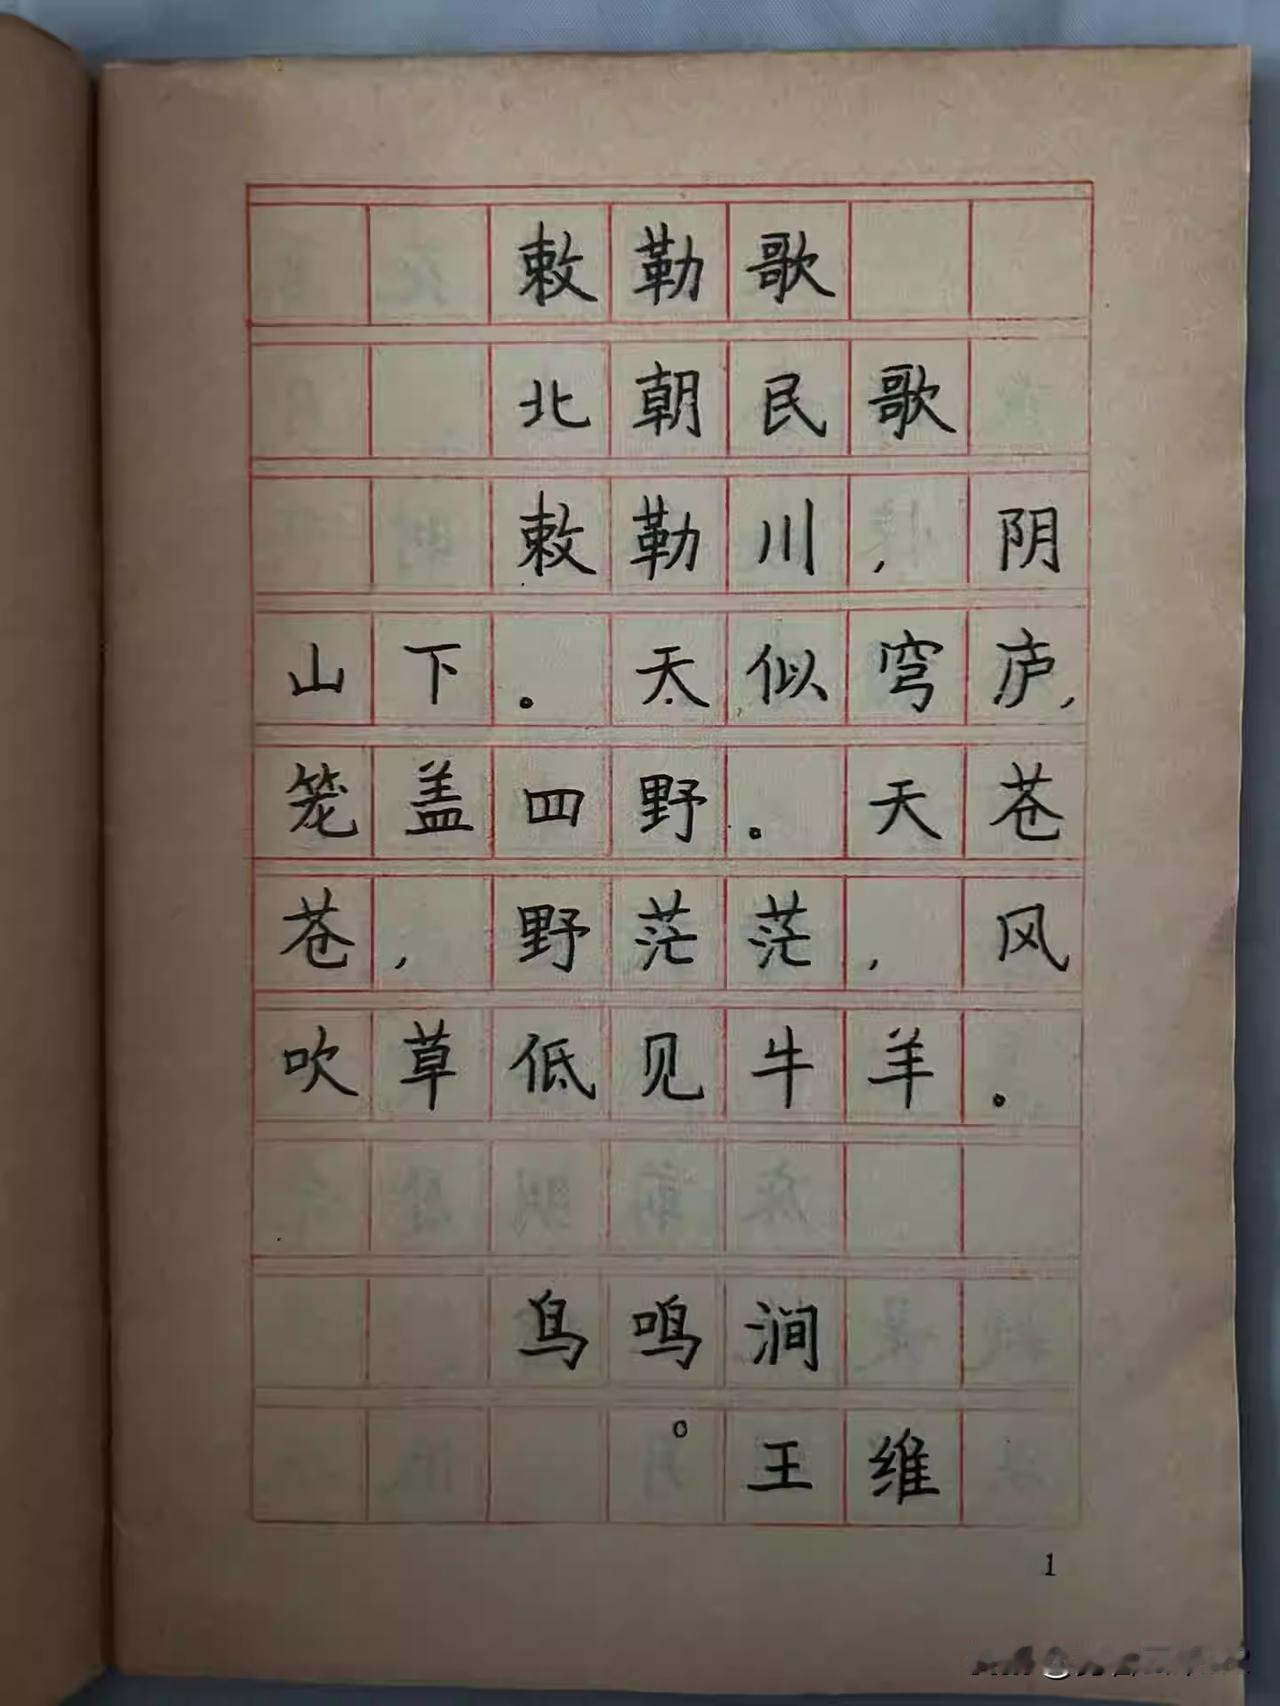 敕勒歌
北朝民歌
敕勒川，阴
山下。天似穹庐，
笼盖四野。天苍
苍，野茫茫，风
吹草低见牛羊。
鸟鸣涧
。王维
1